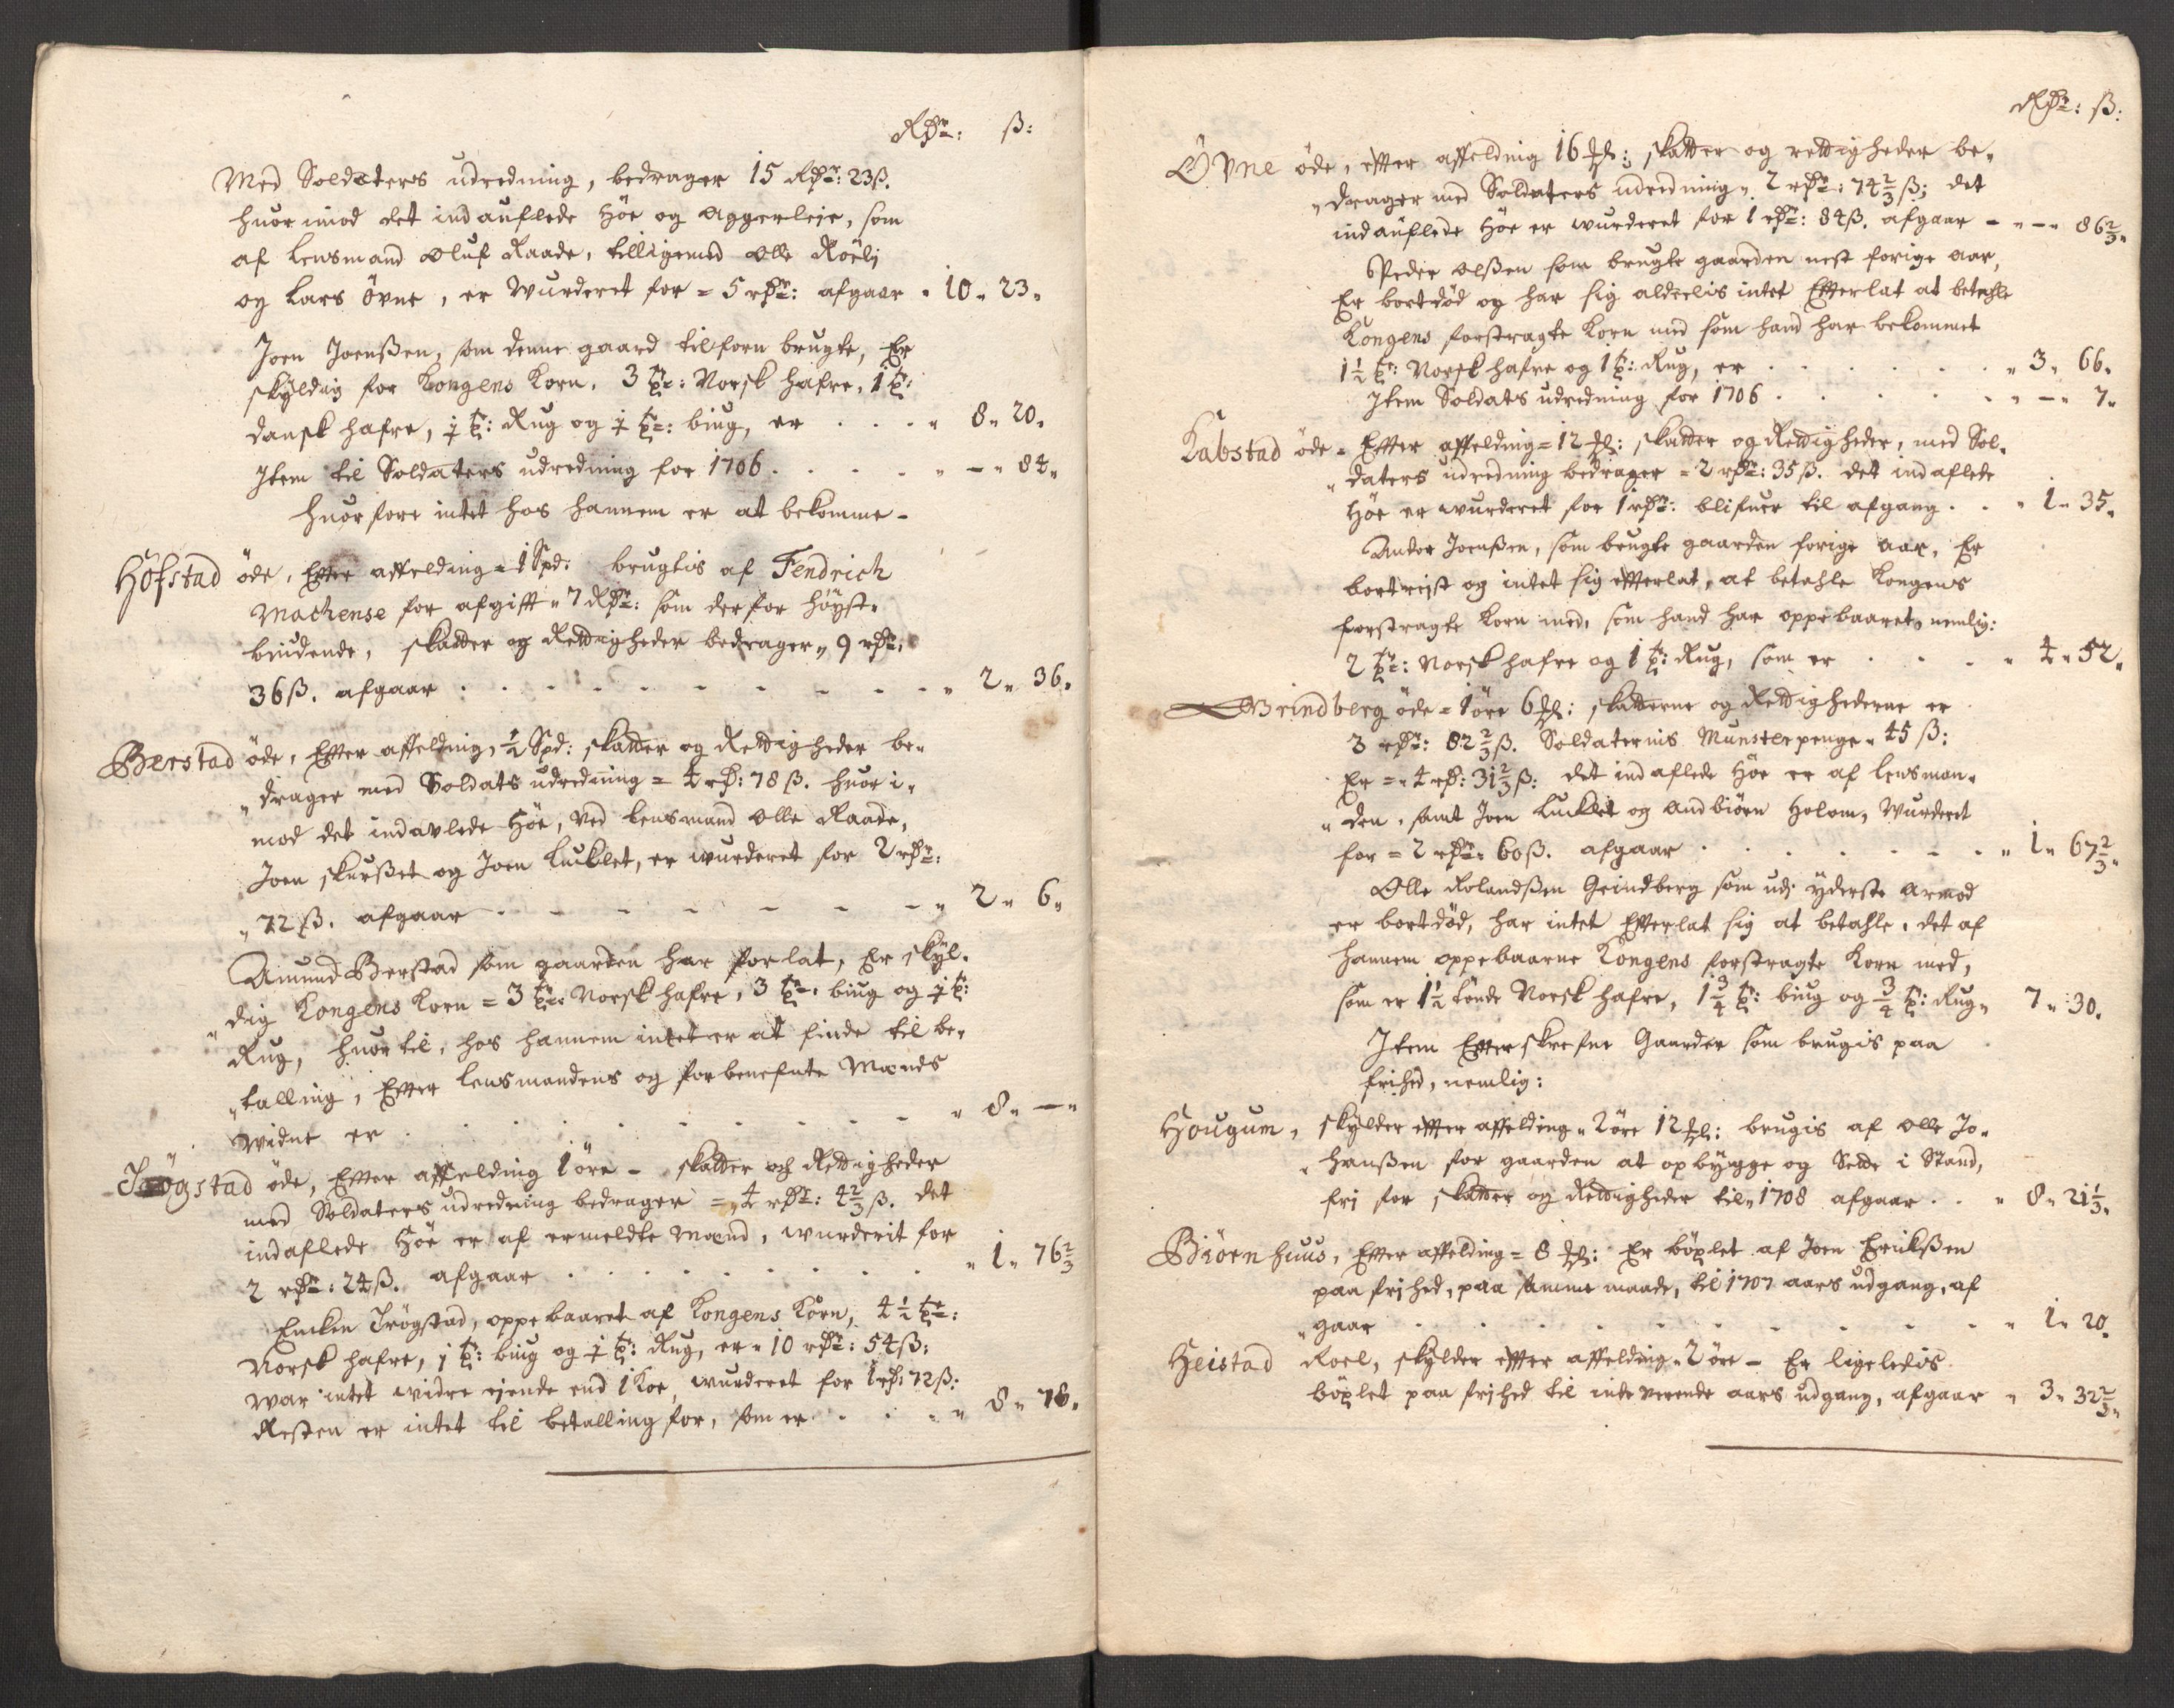 Rdr: ß:
Med Soldaters udredning, bedrager 15 Rdr: 23ß.
huorimod det indauflede Höe og Aggerleje, som
af Lensmand Oluf Raade, tilligemed Olle Röelj
og Lars Övne, er Wurderet for = 5 rdr: afgaar " 10 " 23 "
Joen Joenßen, som denne gaard tilforn brugte, Er
skyldig for Kongens Korn, 3 tr: Norsk hafre, 1 t:
dansk hafre, 1/4 t: Rug og 1/4 tr: biug, er . . . " 8 " 20 "
Item til Soldaters udredning for 1706 . . . . " — " 84 "
huorfore intet hos hannem er at bekomme -
Hofstad öde, Efter affelding = 1 Spd: brugtis af Fendrich
Machense for afgift " 7 Rdr: som derfor höyst-
biudende, skatter og Rettigheder bedrager " 9 rdr:
36ß. afgaar . . . . . . . . . " 2 " 36 "
Berstad öde, Efter affeldnig, 1/2 Spd: skatter og Rettigheder be-
" drager med Soldats udredning = 4 rd: 78 ß. huori-
mod det indavlede Höe, Ved Lensmand Olle Raade,
Joen skurßet og Joen Lucklet, er wurderet for 2 rdr:
" 72 ß. afgaar - - - - - - - " 2 " 6 "
Amund Berstad som gaarden har forlat, Er skyl-
" dig Kongens Korn = 3 tr: Norsk hafre, 3 tr: biug og 1/4 t:
Rug, huortil, hos hannem intet er at finde til be-
" talling, Efter Lensmandens og forbenefnte Mænds
widne er . . . . . . . . " 8 " — "
Trögstad öde, Efter affelding 1 öre - skatter och Rettigheder
med Soldaters udredning bedrager = " 4 rdr: 4 2/3 ß. det
indaflede Höe er af ermeldte Mænd, wurderit for
2 rdr: 24ß. afgaar . . . . . . . " 1 " 76 2/3
Encken Trögstad, oppebaaret af Kongens Korn, 4 1/2 tr:
Norsk hafre, 1 t: biug og 1/4 t: Rug, er " 10 rdr: 54ß:
war intet widre eyende end 1 Koe, wurderet for 1 rd: 72ß:
Resten er intet til betalling for, som er . . . " 8 " 78 "
Rdr: ß:
Övne öde, efter affeldnig 16 ; skatter og rettigheder be-
" drager med Soldaters udredning " 2 rdr: 74 2/3 ß; det
indauflede Höe er wurderet for 1 rdr: 84ß. afgaar - " — " 86 2/3 "
Peder Olßen som brugte gaarden nest forige aar,
Er bortdöd og har sig aldeelis intet Efterlat at betahle
Kongens forstragte Korn med som hand har bekommet
1 1/2 t: Norsk hafre og 1 t: Rug, er . . . . . . " 3 " 66 "
Item Soldats udredning for 1706 . . . . . " — " 7 "
Kabstad öde = Efter affelding = 12 : skatter og Rettigheder, med Sol-
" daters udredning bedrager = 2 rdr: 35 ß. det indaflede
Höe er wurderet for 1 rdr: blifuer til afgang . . " 1 " 35 "
Ander Joenßen, som brugte gaarden forige aar, Er
bortreyst og intet sig efterlat, at betahle Kongens
forstragte Korn med, som hand har oppebaaret, nemlig:
2 tr: Norsk hafre og 1 t: Rug, som er . . . . " 4 " 52 "
Grindberg öde = 1 öre 6 : skatterne og Rettighederne er
3 rdr: 82 2/3 ß. Soldaternis Munsterpenge " 45 ß:
Er = " 4 rd: 31 2/3 ß: det indaflede Höe er af Lensman-
" den, samt Joen Lucklet og Andbiörn Holom, Wurderet
for = 2 rdr: 60ß. afgaar . . . . . . " 1 " 67 2/3 "
Olle Rolandßen Grindberg som udj yderste Armod
er bortdöd, har intet Efterlat sig at betahle, det af
hannem oppebaarne Kongens forstragte Korn med,
som er 1 1/2 tönde Norsk hafre, 1 3/4 t: biug og 3/4 t: Rug " 7 " 30.
Item Efterskrefne Gaarder som brugis paa
frihed, nemlig:
Hougum, skylder efter affelding " 2 öre 12 : brugis af Olle Jo-
" hanßen for gaarden at opbygge og Sette i Stand,
fri for skatter og Rettigheder til " 1708 afgaar . . " 8 " 21 1/3 "
Biörnhuus, Efter affelding = 8 : Er böxlet af Joen Erickßen
paa frihed, paa samme maade, til 1707 aars udgang, af
" gaar . . . . . . . . . . " 1 " 20.
Heistad Roel, skylder efter affelding " 2 öre - Er ligeledis
böxlet paa frihed til indeverende aars udgang, afgaar " 3 " 32 2/3 "